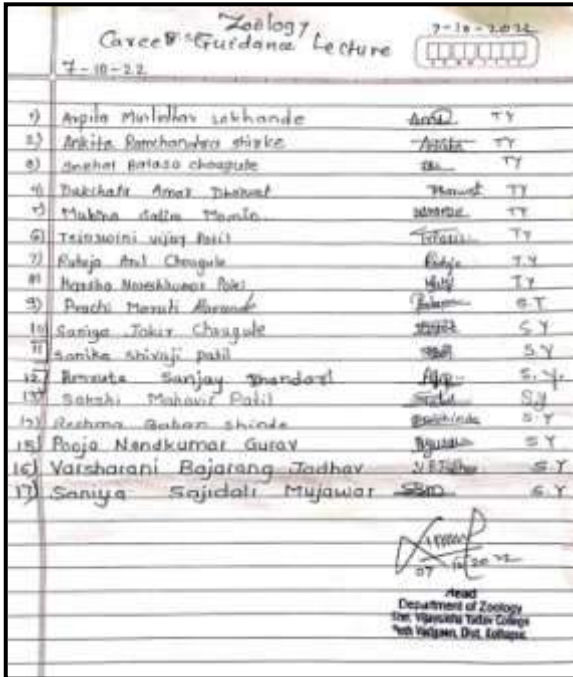 Zoology
Career Guidance Lecture
7-10-2022
7-10-22
1) Arpita Murlidhar Lokhande TY
2) Ankita Ramchandra Shirke TY
3) Snehal Balaso Chougule TY
4) Dakshata Amar Thorwat Thorwat TY
5) Salim Momin TY
6) Vijay Patil TY
7) Rutuja Anil Chougule T.Y
8) Harsha Nareshkumar Patel TY
9) Prachi Maruti S.Y
10) Saniya Jakir Chougule S.Y
11 Sanika Shivaji Patil S.Y
12) Amruta Sanjay Bhandari S.Y.
13) Sakshi Mahavir Patil S.Y
Reshma Baban Shinde S.Y
15) Pooja Nandkumar Gurav S.Y
16) Varsharani Bajarang Jadhav V.B.Jadhav S.Y
17) Saniya Sajidali Mujawar SBM S.Y
Head
Department of Zoology
Smt. Vijaysinha Yadav College
Peth Vadgaon, Dist. Kolhapur.